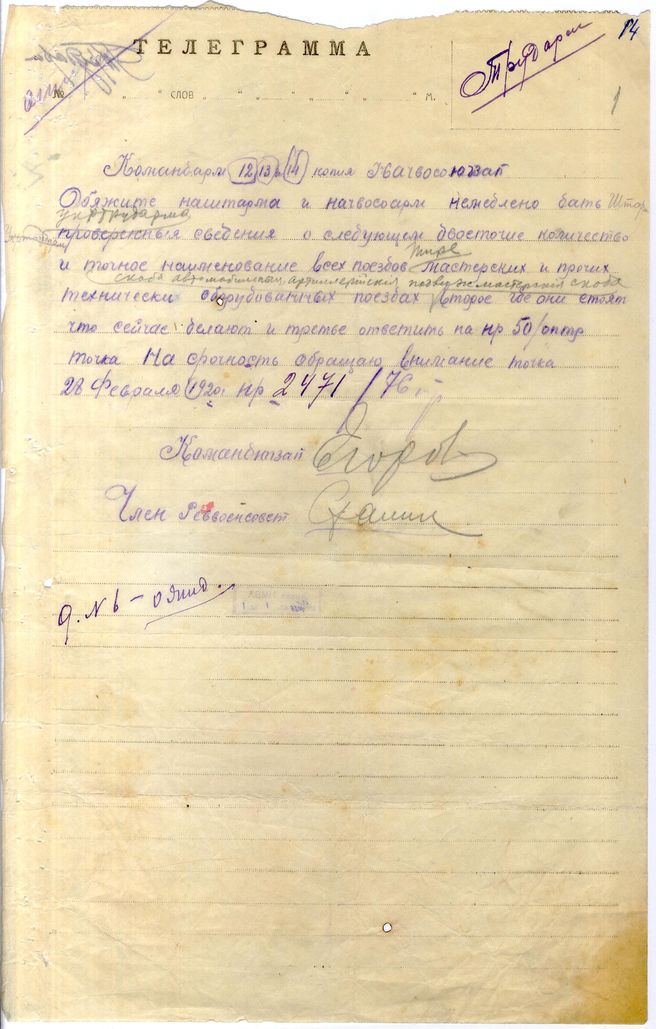 14
ТЕЛЕГРАММА
Трударм
№ " " СЛОВ " " " " " " М.
1
Командарм 12 13 и 14 копия Начвосоюзап
Обяжите наштарма и начвосоарм немедлено дать Штар
укртрударма
проверенныя сведения о следующем двоеточие количество
и точное наименование всех поездов мастерских и прочих
тире
скоба автомобильных артиллерийских поезд мастерских скоба
технически оборудованных поездах второе где они стоят
что сейчас делают и третье ответить на нр 50/оптр
точка На срочность обращаю внимание точка
28 Февраля 1920 г нр 2471 /76
Командюзап Егоров
Член Реввоенсовет Сталин